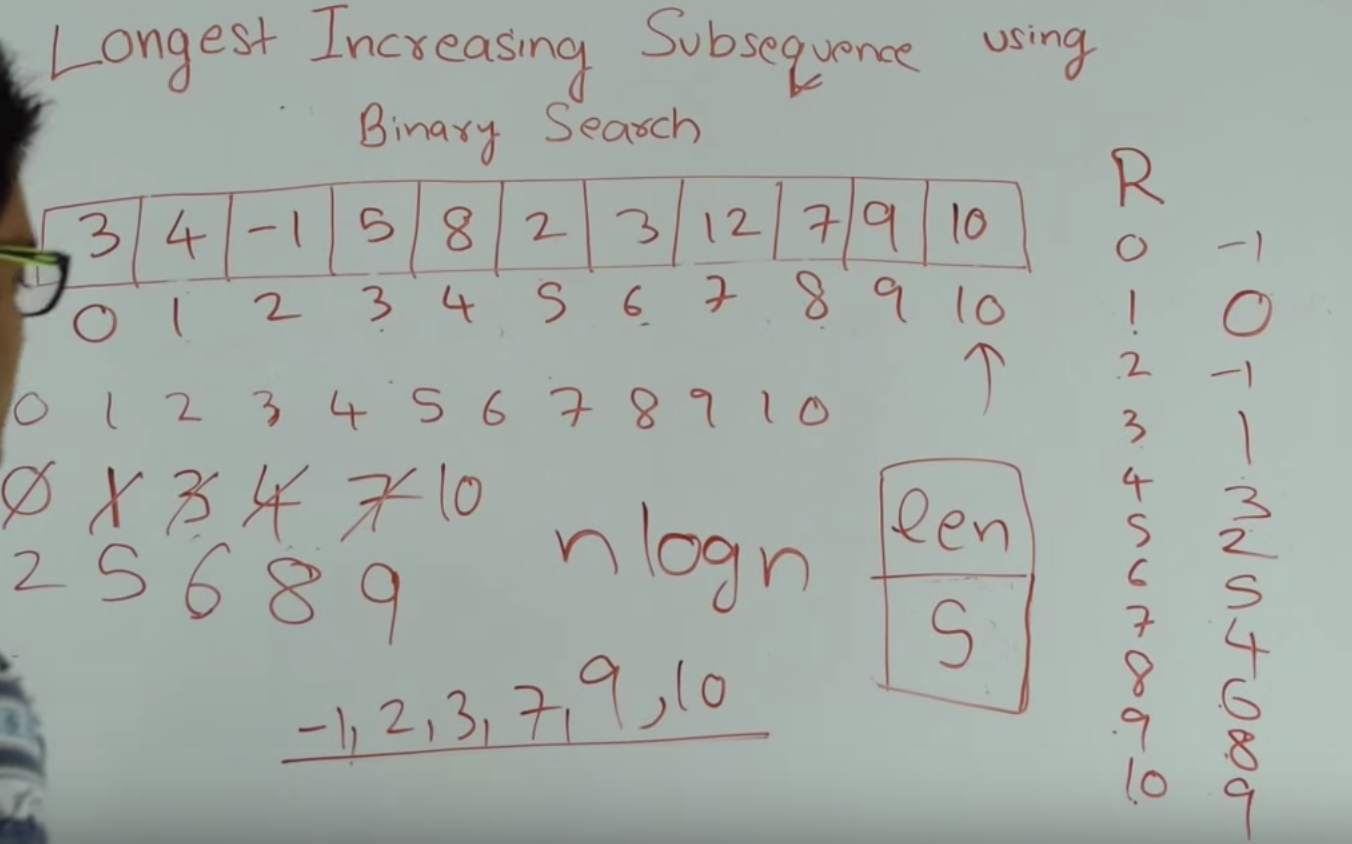 Longest Increasing Subsequence using
Binary Search
3 4 -1 5 8 2 3 12 7 9 10
0 1 2 3 4 5 6 7 8 9 10
0 1 2 3 4 5 6 7 8 9 10
0 1 3 4 7 10
2 5 6 8 9
nlogn
-1, 2, 3, 7, 9, 10
len
5
R
0 -1
1 0
2 -1
3 1
4 3
5 2
6 5
7 4
8 6
9 8
10 9